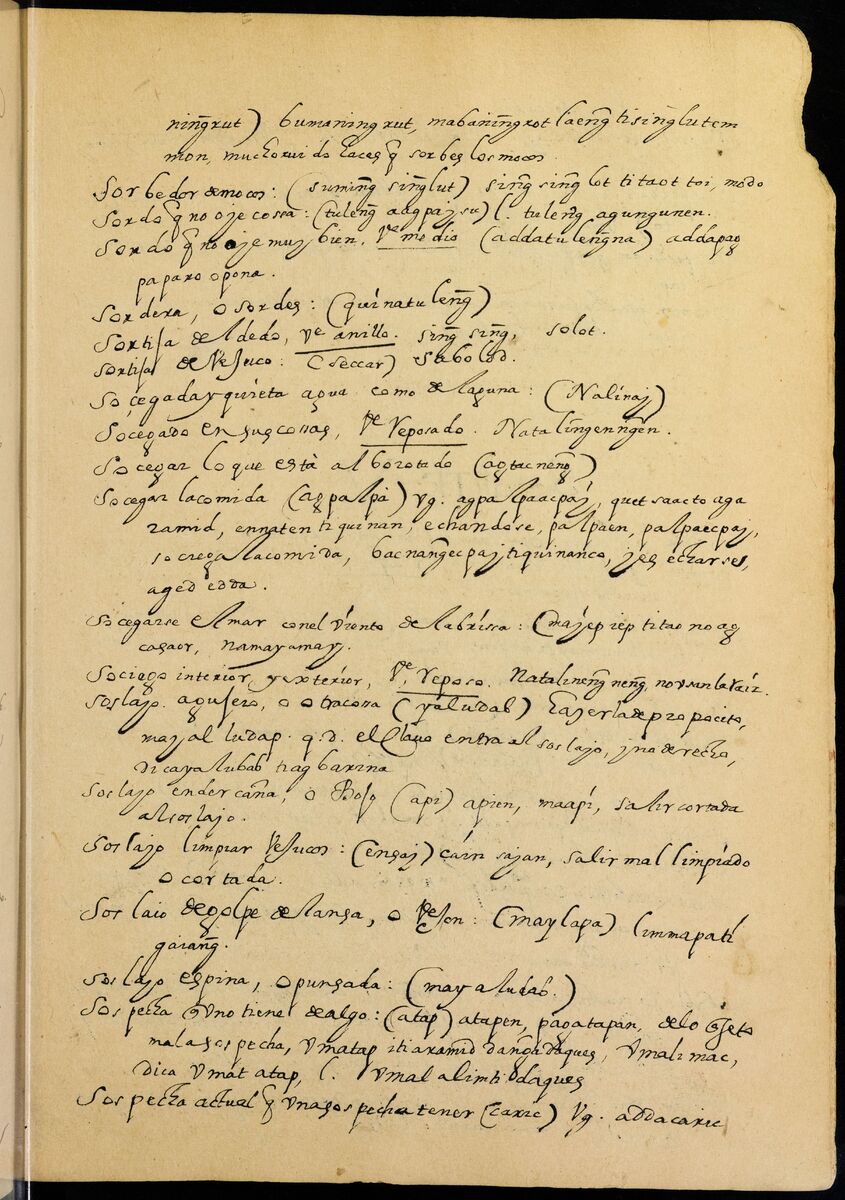 ning̃rut) bumaning rut, mabaning̃rot laeng̃ ti sing̃lutem
mon, mucho rui do haces q̃ sorbes los mocos
Sorbedor de mocos: (suming̃ sing̃lut) sing̃ sing̃ lot ti taot toi, modo
Sordo q̃ no oje cossa: (tuleng̃ adgpajsu) l. tuleng̃ agungunen.
Sordo q̃ no oje muj bien, Vᵉ medio (addatu leng̃na) addapag
paparo opona.
Sordera, o sordes: (quinatu leng̃)
Sortija de l dedo, Vᵉ anillo. sing̃ sing̃, solot.
sortija de Vejuco: (seccar) sabolod.
Soçegada y quieta agua como de laguna: (Nalinaj)
Socegado en sus cossas, Vᵉ Reposado. Natalingenng̃en.
Socegar lo que està alborotado (agtacneng̃)
Socegar la comida (agpalpà) vg. agpalpaacpaj, quet saacto aga
ramid, ennaten ti quinan, echandose, palpaen, palpaecpaj,
socrega la comida, bacnang̃ecpaj ti quinanco, jes echarse,
aged edda.
Socegarse el mar con el viento de la brissa: (majepiep ti tao no ag
cagaor, namayamay.
Sociego interior, y exterior, Vᵉ, Reposo. Natalineng̃ neng̃, no usan la raiz.
Soslajo. agujero, o otra cossa (yaludab) hajerla de proposito,
mayal ludap. q. d. el Clauo entra al soslajo, j no derecho,
Di cayalubab ti ag barina
Soslajo ender caña, o Bojo (api) apien, maapi, salir cortada
al soslajo.
Soslajo limpiar Vejucos: (ensaj) cain sajan, salir mal limpiado
o cortada.
Soslaio de golpe de lansa, o : (maylapa) limmapati
gaiang̃.
Soslajo espina, o punsada: (may aludab.)
Sospecha q̃ uno tiene de algo: (atap) atapen, pagatapan, de lo q̃
mala sospecha, Vmatap iti aramid dang̃i daques, Vmali mac,
Dica Vmat atap, l. Vmal alimti daques
Sospecha actual q̃ una sospecha tener (caric) Vg. adda caric